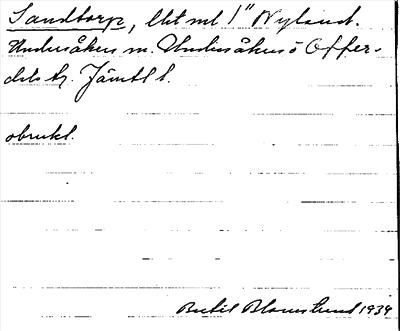 Sandtorp, lht ml 1" Nyland.
Undersåkers sn. Undersåkers o Offer-
dals tg. Jämtl l.
obrukl.
Bertil Blomstrand 1934